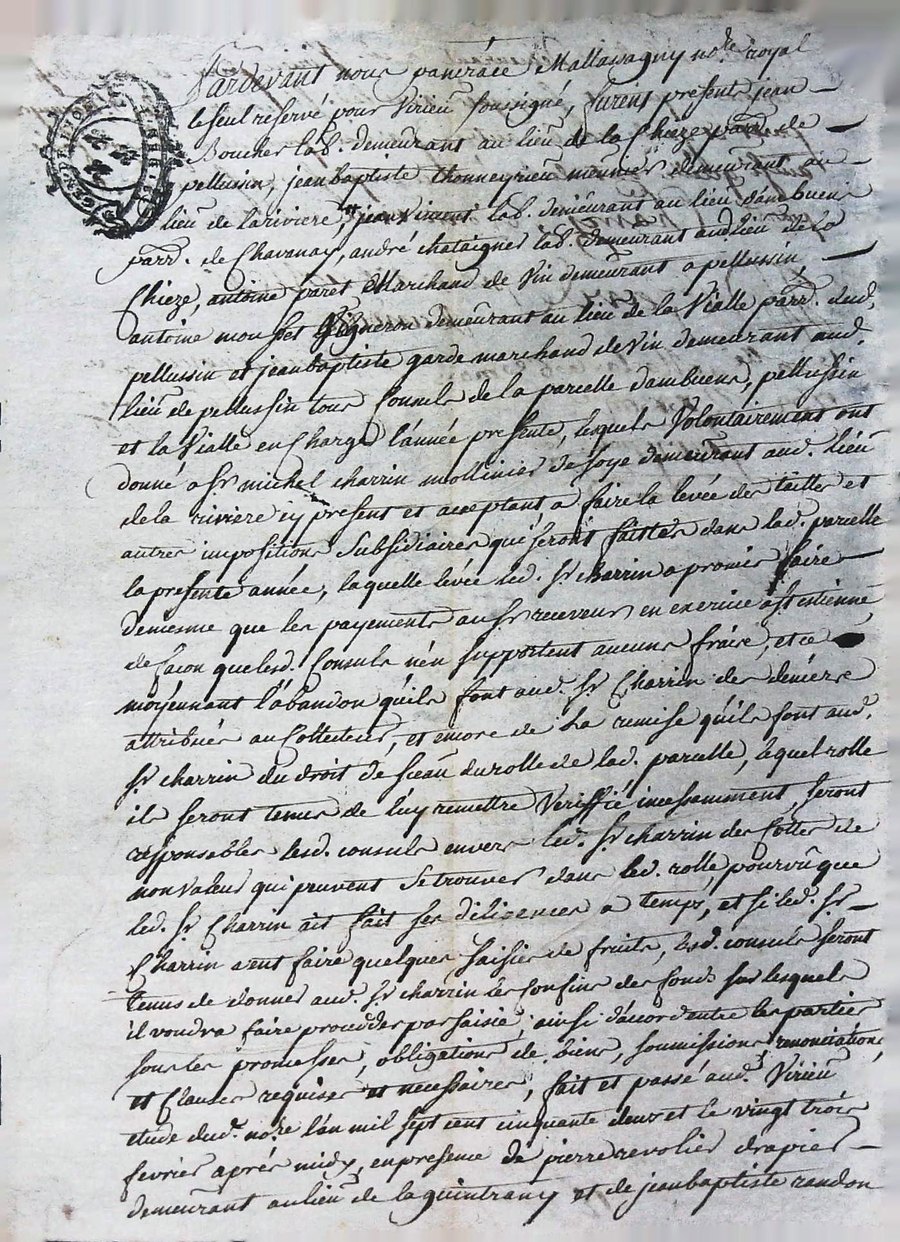 Pardevant nous pancrace Mallassagny no.re royal
le seul reservé pour virieu soussigné, furent present jean
Boucher lab. demeurant au lieu de la Chieze parr. de
pellussin, jeanbaptiste thonneyrieu meunier demeurant au
lieu de lariviere, jean viment lab. demeurant au lieu d'ambuens
parr. de Chavanay, andré chataigner lab. demeurant aud. lieu de la
Chieze, antoine paret Marchand de vin demeurant a pellussin
antoine mousset vigneron demeurant au lieu de la Vialle parr. dud.
pellussin et jeanbaptiste garde marchand de vin demeurant aud.
lieu de pellussin tous Consuls de la parcelle dambuens, pellussin
et la Vialle en Charge l'année presente, lesquels Volontairement ont
donné a sr michel charrin mollinier de soye demeurant aud. lieu
de la riviere icy present et acceptant a faire la levée des tailles et
autres impositions subsidiaires qui seront faistes dans lad. parcelle
la presente année, laquelle levée led. sr charrin a promis faire
demesme que les payements au sr receveur en exercice a st estienne
de façon que lesd. Consuls n'en supportent aucuns frais, et ce
moyennant l'abandon qu'ils font aud. sr Charrin des deniers
attribués au Collecteur, et encore de la remise qu'ils font aud.
sr charrin du droit de sceau du rolle de lad. parcelle, lequel rolle
ils seront tenus de luy remettre Veriffié incessamment, seront
responsables lesd. consuls envers led. sr charrin des Cottes de
non valeur qui peuvent se trouver dans led. rolle pourvû que
led. sr Charrin ait fait ses diligences a temps, et si led. sr
Charrin veut faire quelques saisies de fruits, lesd. consuls seront
tenus de donner aud. sr charrin les confins des fond. sur lesquels
il voudra faire proceder par saisie, ainsi d'accord entre les parties
sous les promesses, obligations de biens, soumissions, renonciations
et Clauses requises et necessaires, fait et passé aud. Virieu
etude dud. no.re l'an mil sept cent cinquante deux et le vingt trois
fevrier après midy, en presence de pierre revolier drapier
demeurant au lieu de la guintrany et de jeanbaptiste randon